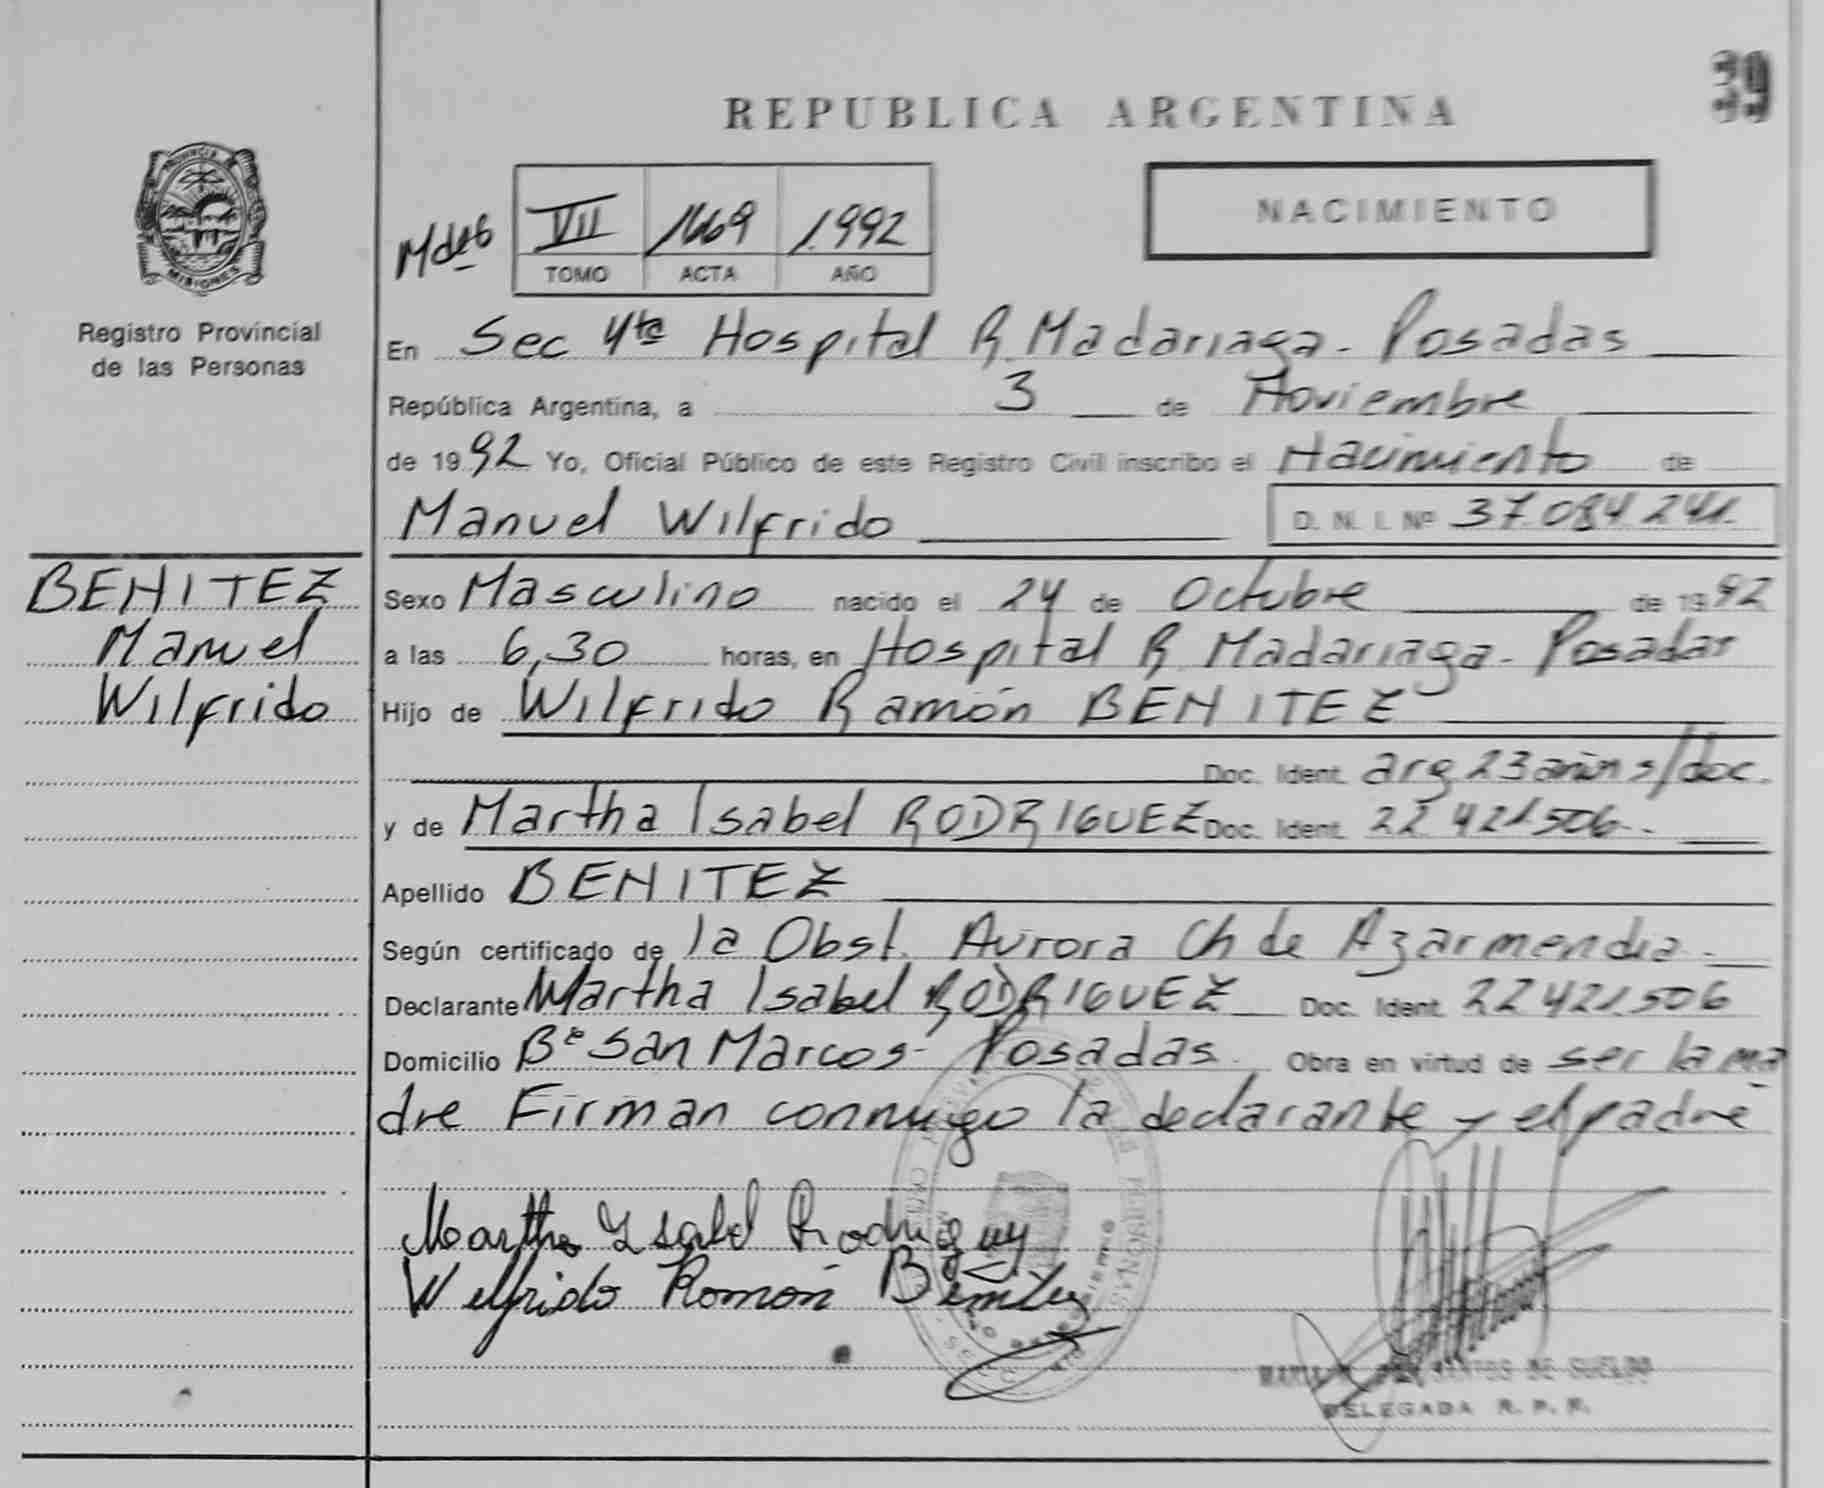 39
REPUBLICA ARGENTINA
PROVINCIA
MISIONES
Registro Provincial
de las Personas
NACIMIENTO
VII 1669 1992
TOMO ACTA AÑO
En Sec 4ta Hospital R. Madariaga - Posadas
República Argentina, a 3 de Noviembre
de 1992 Yo, Oficial Público de este Registro Civil inscribo el Nacimiento de
Manuel Wilfrido D. N. I. Nº 37.084.241.
BENITEZ
Manuel
Wilfrido
Sexo Masculino nacido el 24 de Octubre de 1992
a las 6,30 horas, en Hospital R. Madariaga - Posadas
Hijo de Wilfrido Ramón BENITEZ
Doc. Ident. arg. 23 años s/doc.
y de Martha Isabel RODRIGUEZ Doc. Ident. 22.421.506.
Apellido BENITEZ
Según certificado de la Obst. Aurora Ch de Azarmendia.
Declarante Martha Isabel RODRIGUEZ Doc. Ident. 22.421.506
Domicilio Bº San Marcos - Posadas. Obra en virtud de ser la ma
dre Firman conmigo la declarante y el padre
Martha Isabel Rodriguez
Wilfrido Ramón Benitez
DE SUELDO
DELEGADA R. P. P.